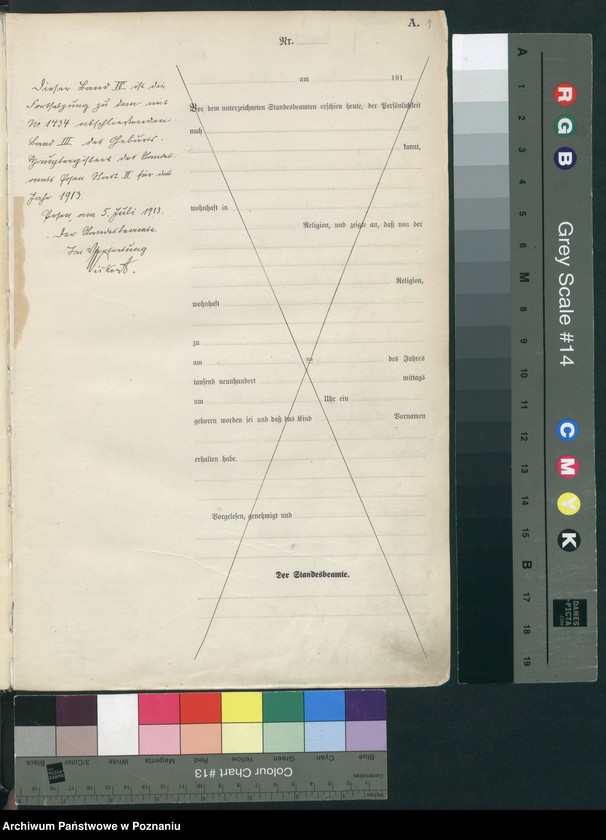 A. 1
Nr.
am 191
Vor dem unterzeichneten Standesbeamten erschien heute, der Persönlichkeit
nach
kannt,
wohnhaft in
Religion, und zeigte an, daß von der
Religion,
wohnhaft
zu
am ten des Jahres
tausend neunhundert mittags
um Uhr ein
geboren worden sei und daß das Kind Vornamen
erhalten habe.
Vorgelesen, genehmigt und
Der Standesbeamte.
Dieser Band IV. ist die
Fortsetzung zu dem mit
No 1434 abschließenden
Band III. des Geburts-
Hauptregisters des Standes-
amts Posen Stadt II für das
Jahr 1913.
Posen, am 5. Juli 1913.
Der Standesbeamte.
In Vertretung
A 1 2 3 4 5 6 M 8 9 10 11 12 13 14 15 B 17 18 19
R G B
Grey Scale #14
C M Y K
DANES
-PICTA
.COM
Black 3/Color White Magenta Red Yellow Green Cyan Blue
Colour Chart #13
DANES
PICTA
Centimetres
Inches
Archiwum Państwowe w Poznaniu